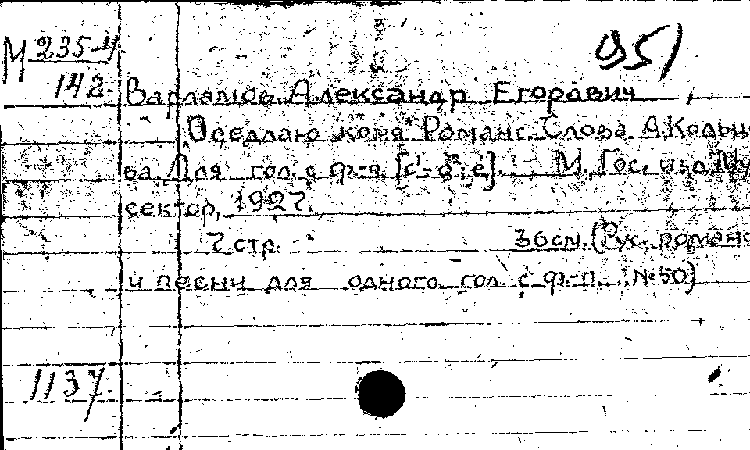 М 235-4
142
951
Варламов Александр Егорович
Оседлаю коня. Романс. Слова А. Кольцо
ва. Для гол. с ф-п. [с¹-
М. Гос. изд. Му
сектор, 1927.
7 стр. 36 см. (Рус. романс
и песни для одного гол. с ф-п. №50)
1137